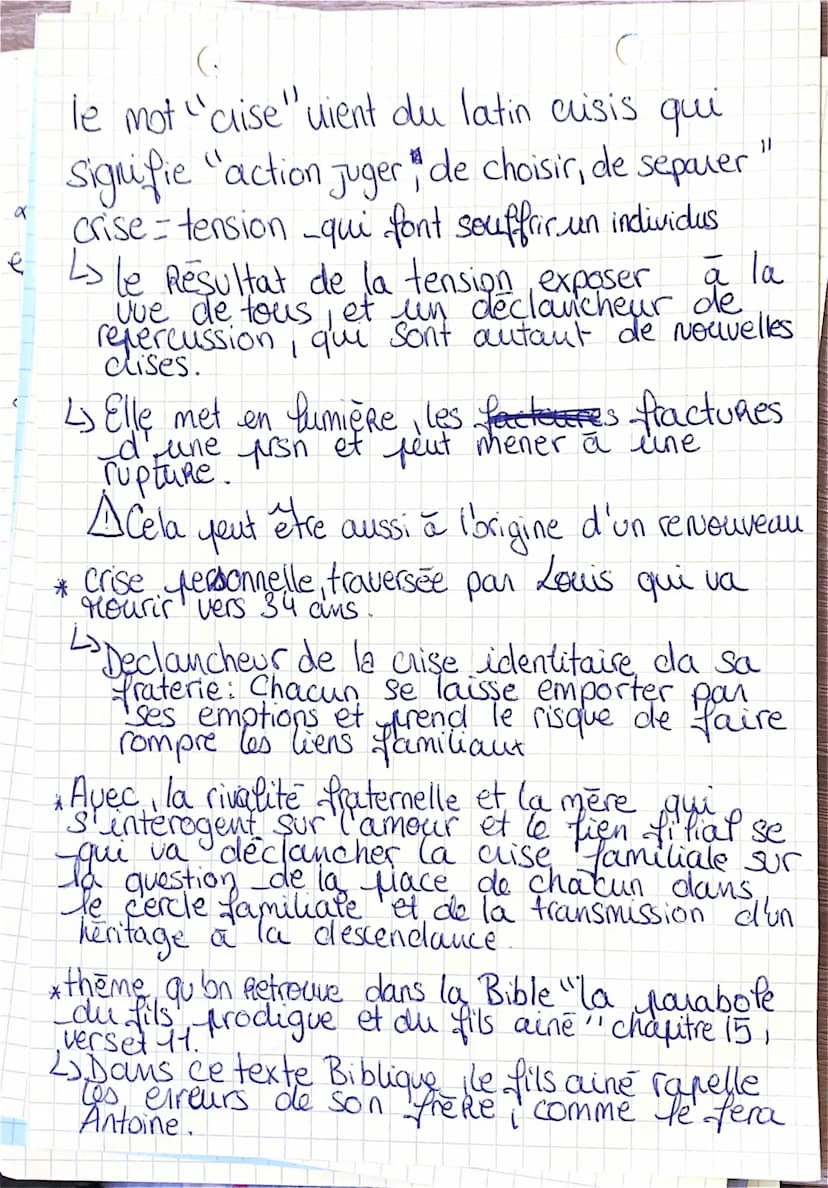 le mot "crise" vient du latin crisis qui
signifie "action juger, de choisir, de separer"
crise = tension qui font souffrir un individus
↳ le Résultat de la tension exposer à la
vue de tous, et un déclancheur de
repercussion, qui sont autant de nouvelles
crises.
↳ Elle met en lumière, les fractures
d'une prsn et peut mener à une
rupture.
⚠ Cela peut être aussi à l'origine d'un renouveau
* crise personnelle, traversée par Louis qui va
mourir vers 34 ans.
↳ Declancheur de la crise identitaire da sa
fraterie : Chacun se laisse emporter par
ses emotions et prend le risque de faire
rompre les liens familiaux
* Avec, la rivalité fraternelle et la mère qui
s'interogent sur l'amour et le lien filial se
qui va déclancher la crise familiale sur
la question de la place de chacun dans
le cercle familiale et de la transmission d'un
héritage à la descendance.
* thème qu'on Retrouve dans la Bible "la parabole
du fils prodigue et du fils ainé" chapitre 15,
verset 11.
↳ Dans ce texte Biblique, le fils ainé rapelle
les erreurs de son frère, comme le fera
Antoine.